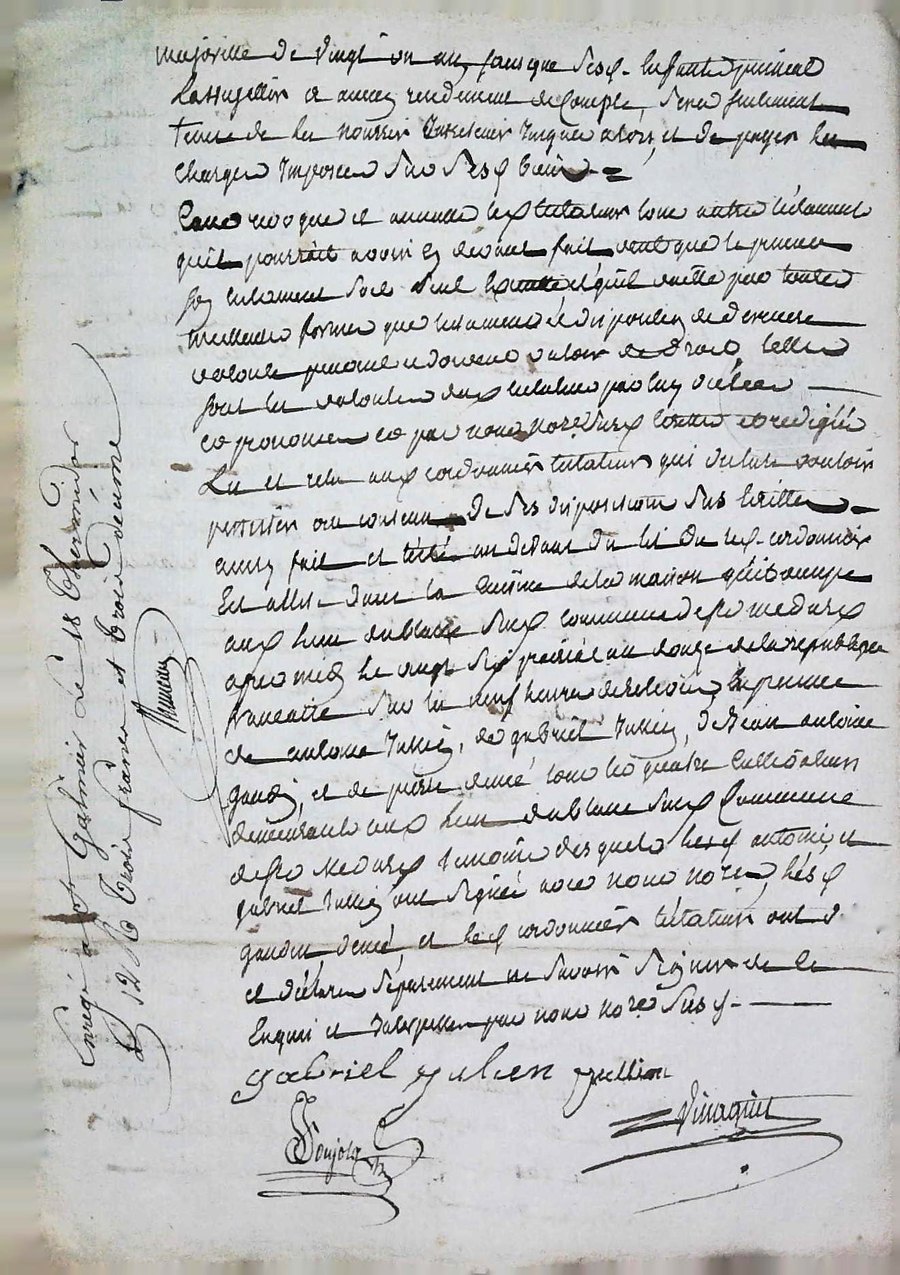 majoritté de vingt un an sans que sesd. enfants puissent
l'assujettir a aucun rendement de compte, sera seulement
tenue de les nourrir entretenir jusques alors, et de payer les
charges imposées sur sesd biens
Casse revoque et annulle led testateur tout autre testament
quil pourroit avoir cy devant fait veut que le present
soit seul executté et quil vaille par toutes
meilleures formes que testament et disposition de derniere
volonté peuvent et doivent valoir de droit, telles
sont les volontés dud testateur par luy dictées
et prononcées et par nous nore susd ecrittes et redigées
Lu et relu aud cordonnier testateur qui declare vouloir
persister au contenu de ses dispositions sus ecrittes
aussy fait et récité au devant du lit dud cordonnier
est assis dans la cuisine de la maison quil occupe
aud lieu dublanc susd commune de st medard
apres midy le vingt six prairial an douze de la republique
francaise sur les neuf heures de relevée, en presence
de antoine Jullien, de gabriel Jullien, de Jean antoine
gaudin, et de pierre tous les quatre cultivateurs
demeurants aud lieu dublanc susd Commune
de st Medard temoins desquels lesd antoine et
gabriel Jullien ont signés avec nous nore, lesd
gaudin et led cordonnier testateur ont
et declaré séparement ne savoir signer de ce
Enquis et Interpellés par nous nore susd.
gabriel julien jullien
Enregé a st Galmier le 18 thermidor
an 12 R trois francs et trois decime